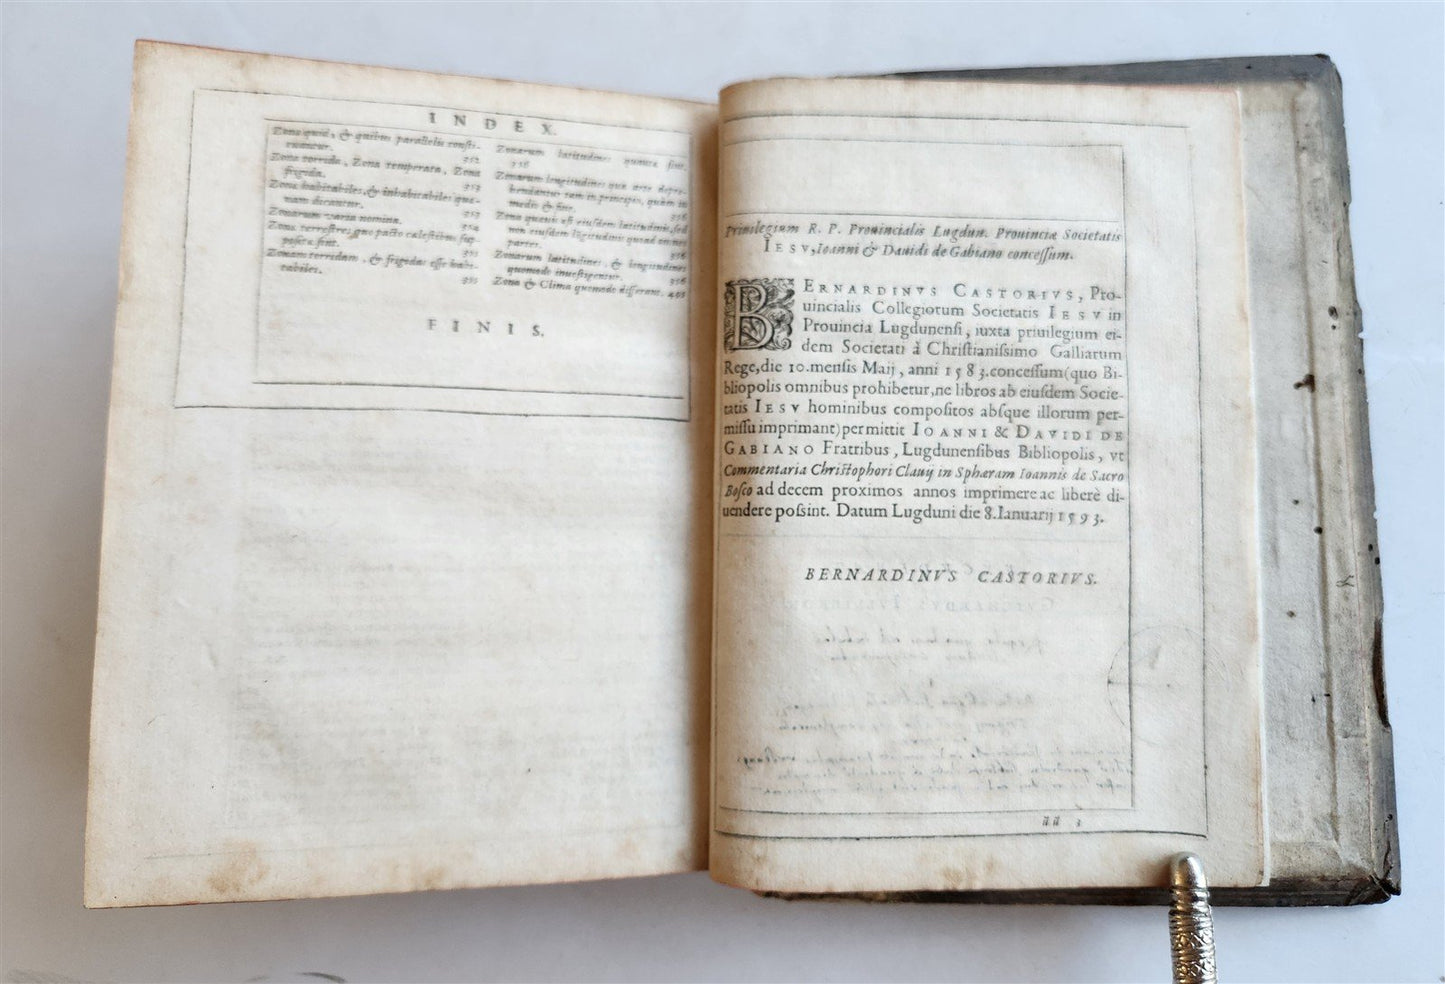 INDEX.
Zona quid, & quibus parallelis consti-
tuantur. 312
Zona torrida, Zona temperata, Zona
frigida. 313
Zona habitabiles, & inhabitabiles quę-
nam dicantur. 313
Zonarum varia nomina. 314
Zona terrestres quo pacto cælestibus sup-
positæ sint.
Zonam torridam, & frigidas esse habi-
tabiles.
Zonarum latitudines quantæ sint.
316
Zonarum longitudines qua arte depre-
hendantur tam in principio, quàm in
medio & fine. 316
Zona quauis est eiusdem latitudinis, sed
non eiusdem lõgitudinis quoad omnes
partes.
Zonarum latitudines, & longitudines
quomodo inuestigentur. 316
Zona & Clima quomodo differant. 405
FINIS.
Priuilegium R. P. Prouincialis Lugdun. Prouinciæ Societatis
IESV, Ioanni & Dauidi de Gabiano concessum.
BERNARDINVS CASTORIVS, Pro-
uincialis Collegiorum Societatis IESV in
Prouincia Lugdunensi, iuxta priuilegium ei-
dem Societati à Christianissimo Galliarum
Rege, die 10. mensis Maij, anni 1583. concessum (quo Bi-
bliopolis omnibus prohibetur, ne libros ab eiusdem Socie-
tatis IESV hominibus compositos absque illorum per-
missu imprimant) permittit IOANNI & DAVIDI DE
GABIANO Fratribus, Lugdunensibus Bibliopolis, vt
Commentaria Christophori Clauij in Sphæram Ioannis de Sacro
Bosco ad decem proximos annos imprimere ac liberè di-
uendere possint. Datum Lugduni die 8. Ianuarij 1593.
BERNARDINVS CASTORIVS.
āā 3